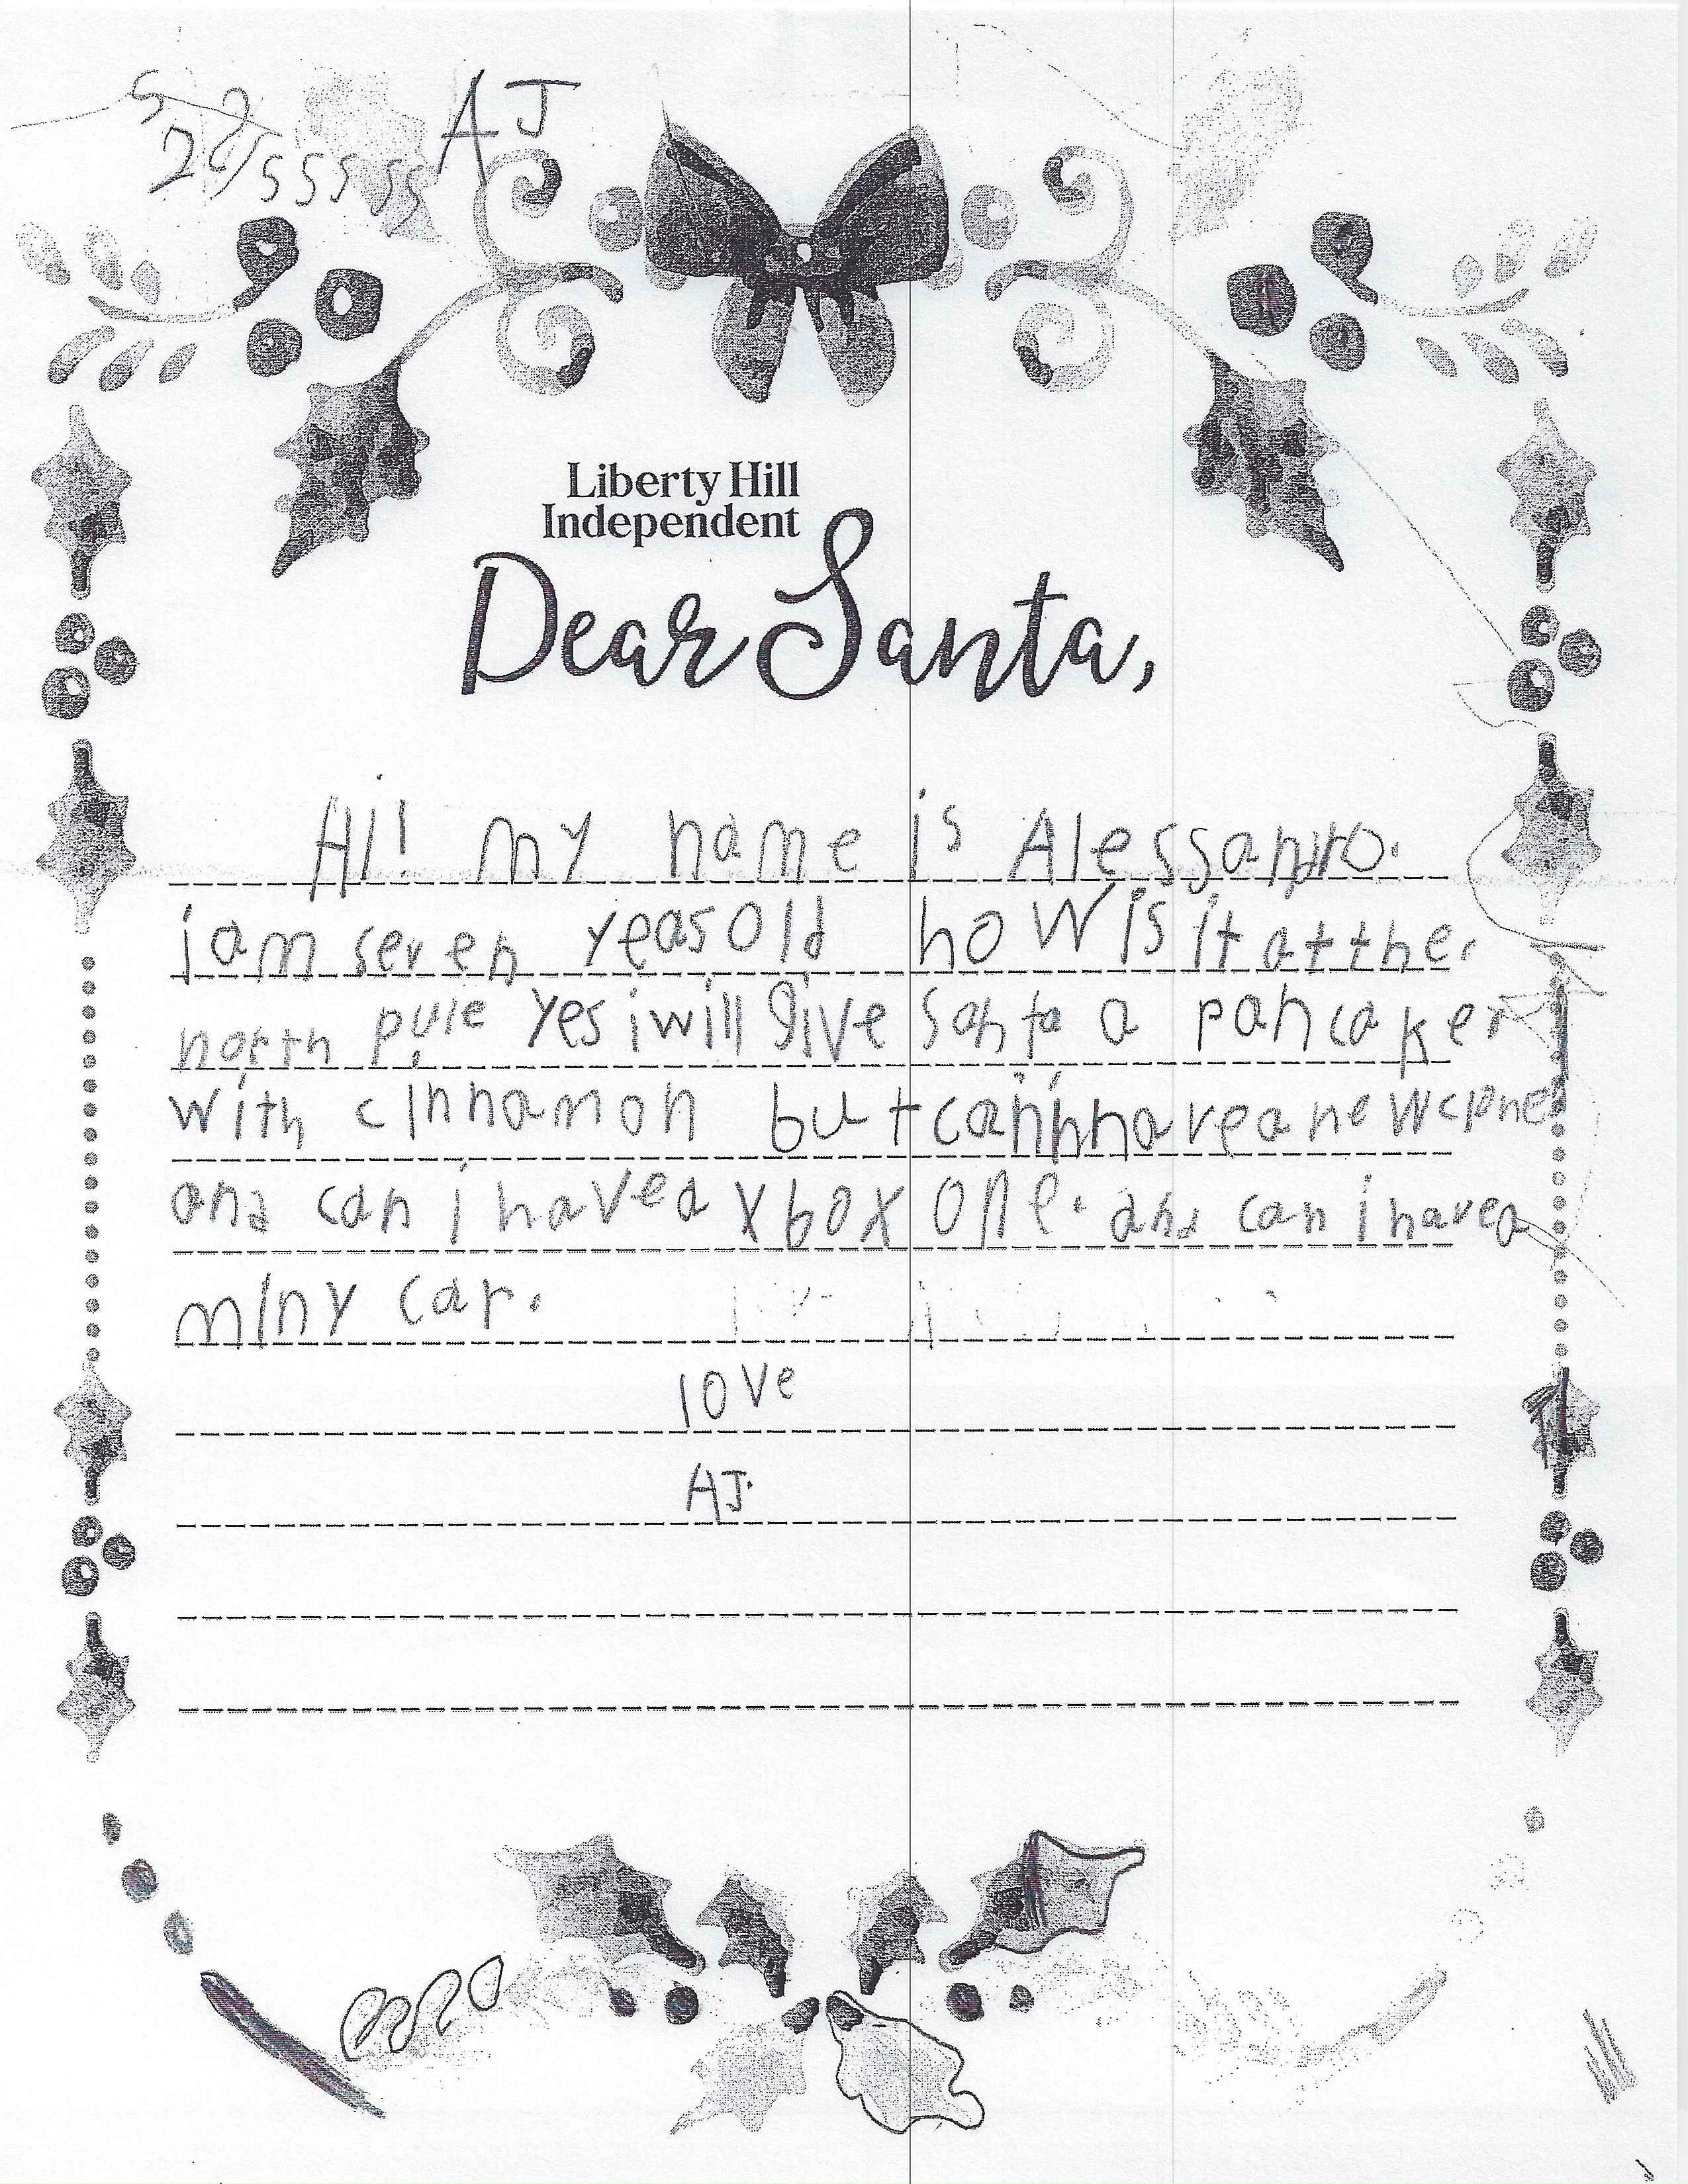 AJ
Liberty Hill
Independent
Dear Santa,
Hi! my name is Alessanro.
i am seven yeas old how is it at the.
north pule yes i will give santa a pancaker
with cinnamon but can i have a new
and can i have a xbox one. and can i have a
miny car.
love
AJ.